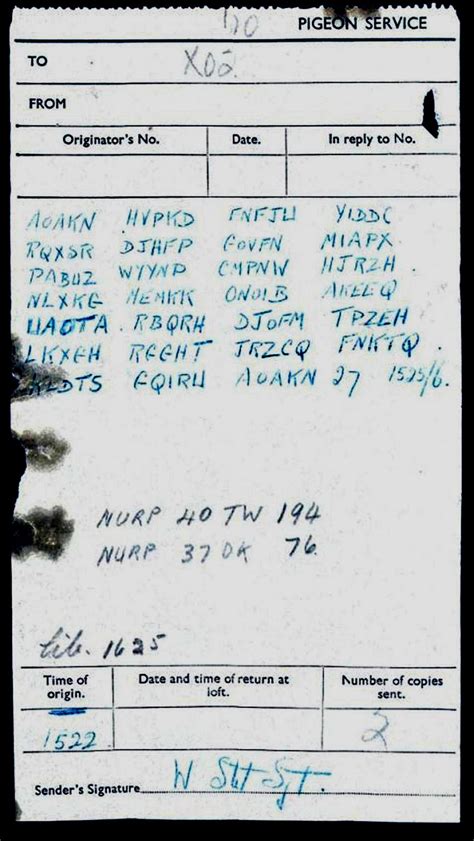 PIGEON SERVICE
TO XO2
FROM
Originator's No. Date. In reply to No.
AOAKN HVPKD FNFJW YIDDC
RQXSR DJHFP GOVFN MIAPX
PABUZ WYYNP CMPNW HJRZH
NLXKG MEMKK ONOIB AKEEQ
UAOTA RBQRH DJOFM TPZEH
LKXGH RGGHT JRZCQ FNKTQ
KLDTS GQIRW AOAKN 27 1525/6
NURP 40 TW 194
NURP 37 DK 76
lib. 1625
Time of origin. Date and time of return at loft. Number of copies sent.
1522 2
Sender's Signature W Stot Sjt